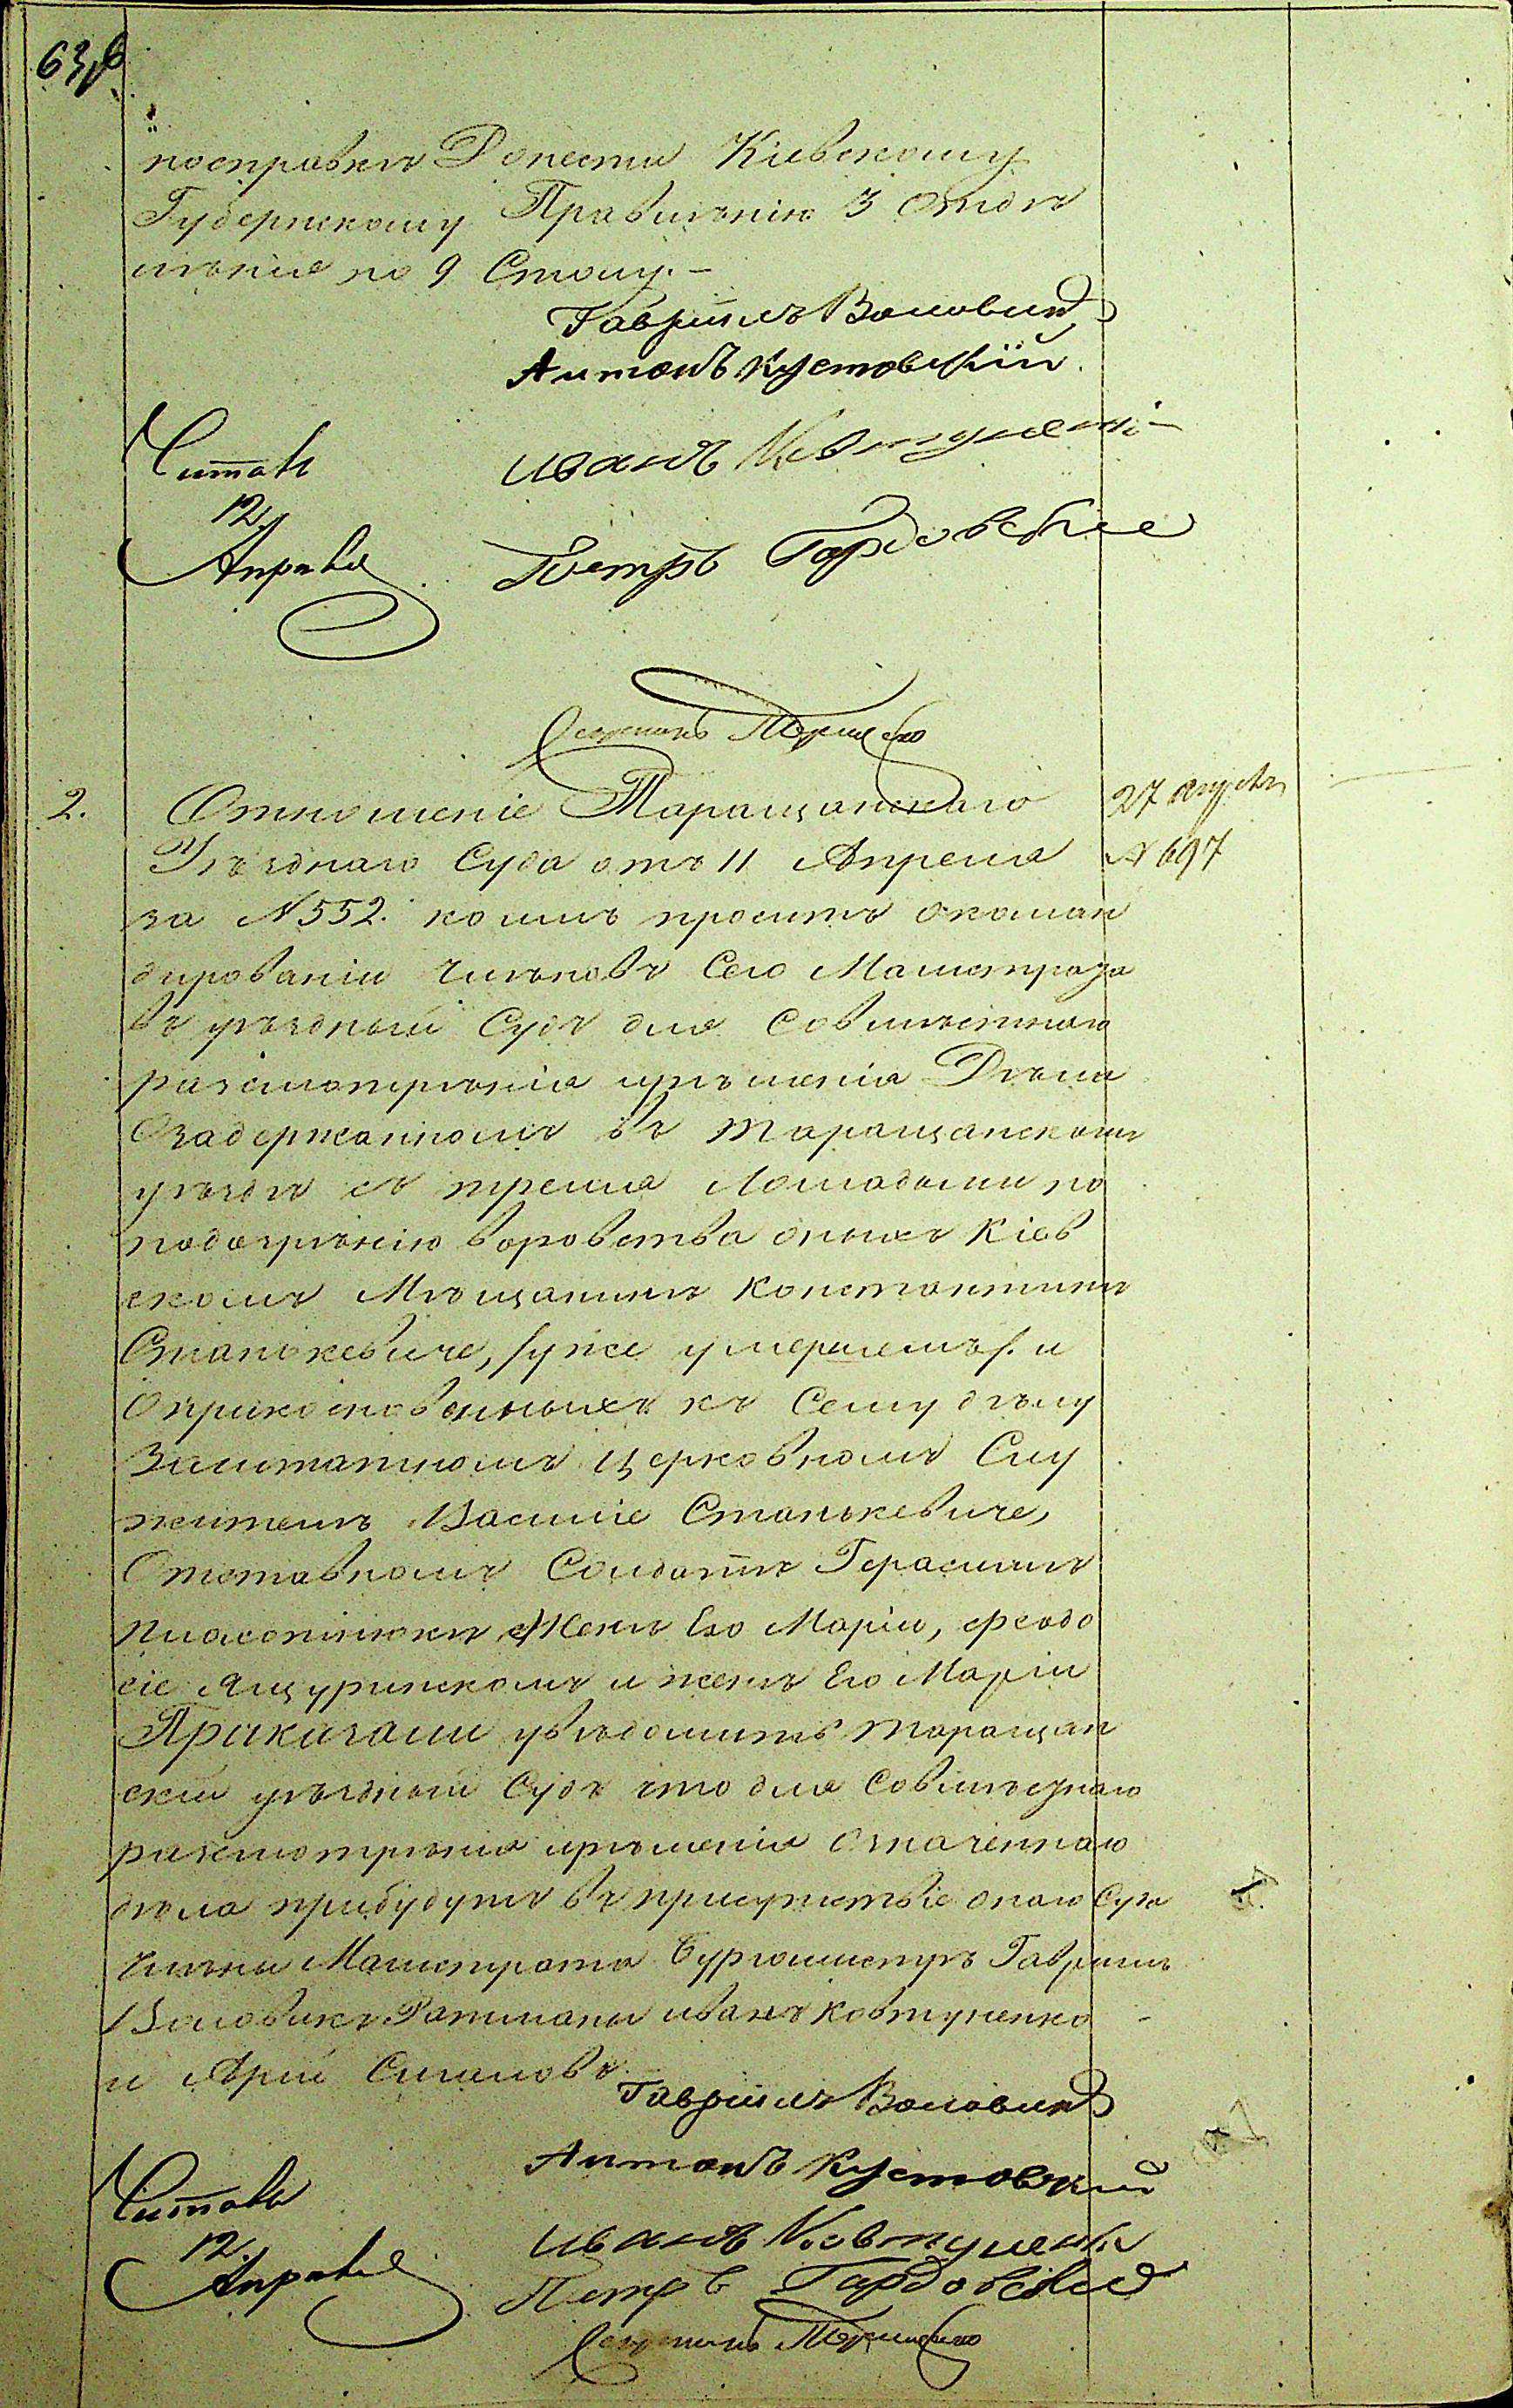 посправкѣ Донести Кіевскому
Губернскому Правленію 3 Отдѣ
ленія по 9 Столу. –
Гаврiилъ Воловикъ
Антонъ Кустовскій
Читалъ
Иванъ Ковтуненко
12
Апрѣля
Петръ Гордовскій
2.
Отношеніе Таращанскаго
27 августа
Уѣзднаго Суда отъ 11 Апреля
N 697
за N 552. коимъ проситъ окоман
дированіи Членовъ Сего Магистрата
въ уѣздный Судъ для Совмѣстнаго
разсмотрѣнія ирѣшенія Дѣла
Озадержанномъ въ Таращанскомъ
уѣздѣ съ тремя Лошадьми по
подозрѣнію воровства оныхъ Кіев
скомъ Мѣщанинѣ Константинѣ
Станкевиче, /уже умершемъ/. и
Оприкосновенныхъ къ Сему дѣлу
Заштатномъ церковномъ Слу
жителѣ Василіе Станькевиче,
Отставномъ Солдатѣ Герасимѣ
Женѣ Его Маріи, Феодо
сіе Ящуринскомъ и женѣ Его Маріи
Приказали увѣдомить Таращан
скій уѣздный Судъ что для Совмѣстнаго
разсмотрѣнія ирѣшенія Означеннаго
дѣла прибудутъ въ присутствіе онаго Суда
Члены Магистрата Бургомистръ Гавріилъ
Воловикъ Ратманы иванъ Ковтуненко
и Арій Сигаловъ
Гаврiилъ Воловикъ
Антонъ Кустовскій
Читалъ
Иванъ Ковтуненко
12.
Апрѣля
Петръ Гордовскій